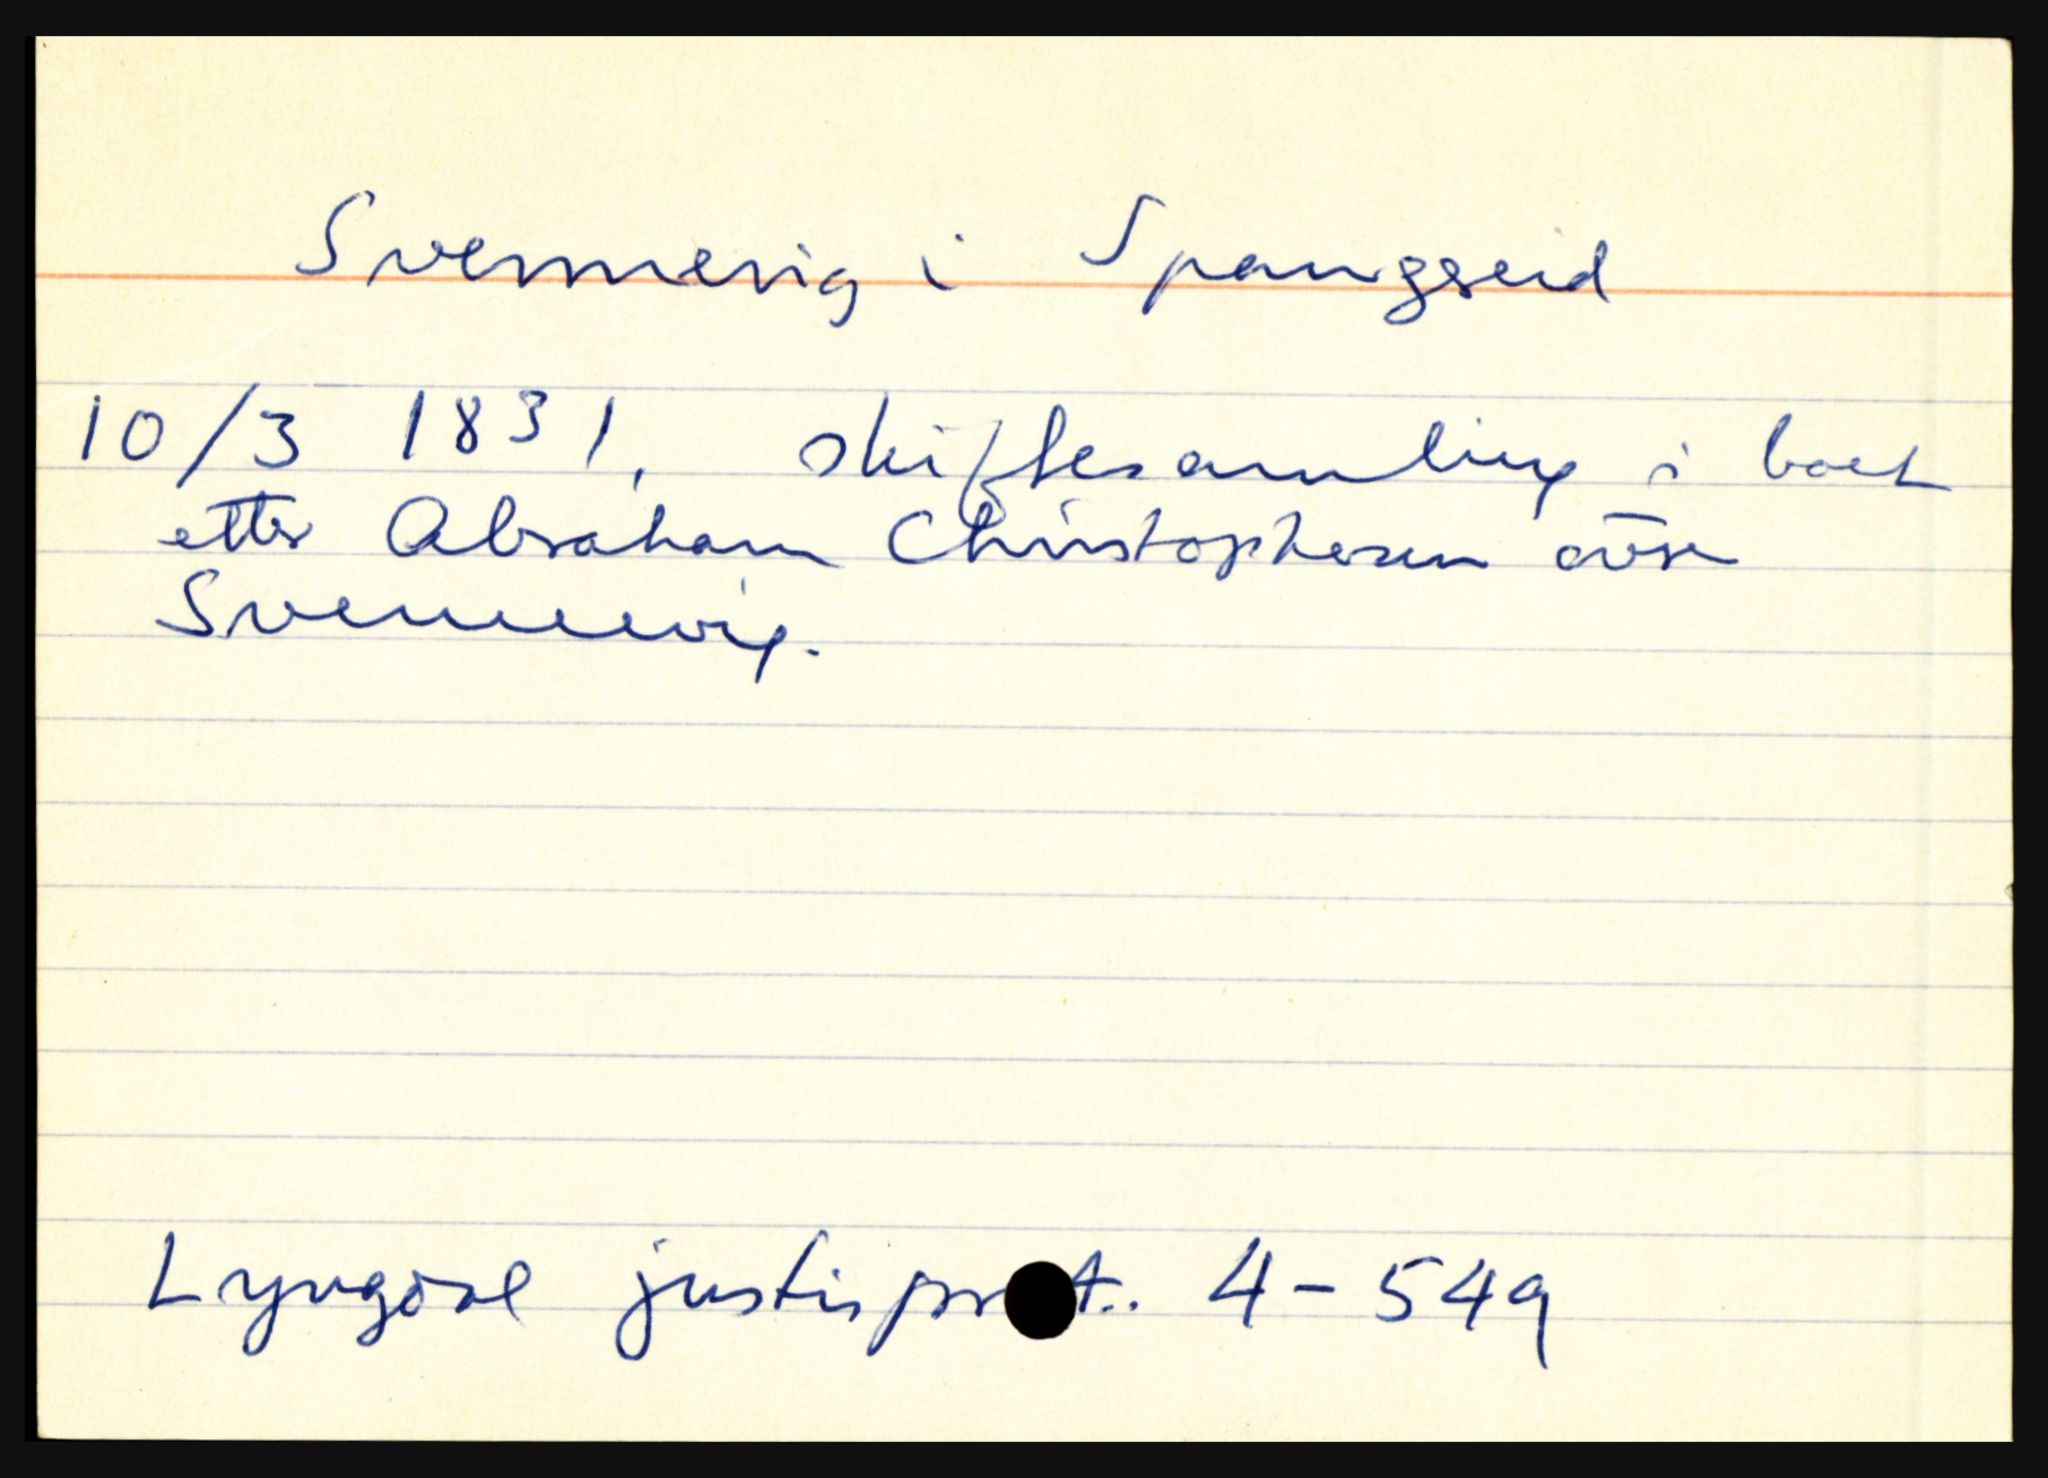 Svennevig i Spangseid
10/3 1831, skiftesamling i boet
etter Abraham Christophersen øvre
Svennevig.
Lyngdal justisprot. 4-549